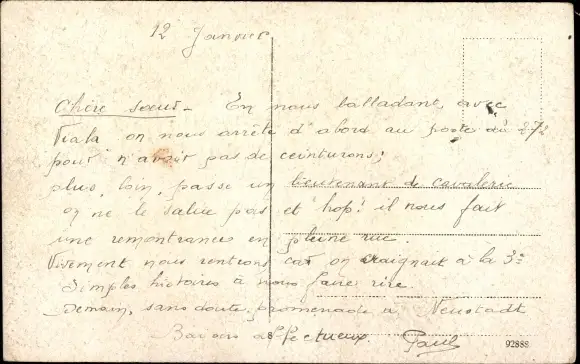 12 Janvier
Chère sœur - En nous balladant, avec
Viala on nous arrête d'abord au poste du 272
pour n'avoir pas de ceinturons;
plus, loin, passe un lieutenant de cavalerie
on ne le salue pas et hop! il nous fait
une remontrances en pleine rue.
Vivement nous rentrions car on craignait à la 3e
Simples histoires à nous faire rire.
Demain, sans doute, promenade à Neustadt
Baisers affectueux. Paul
92888